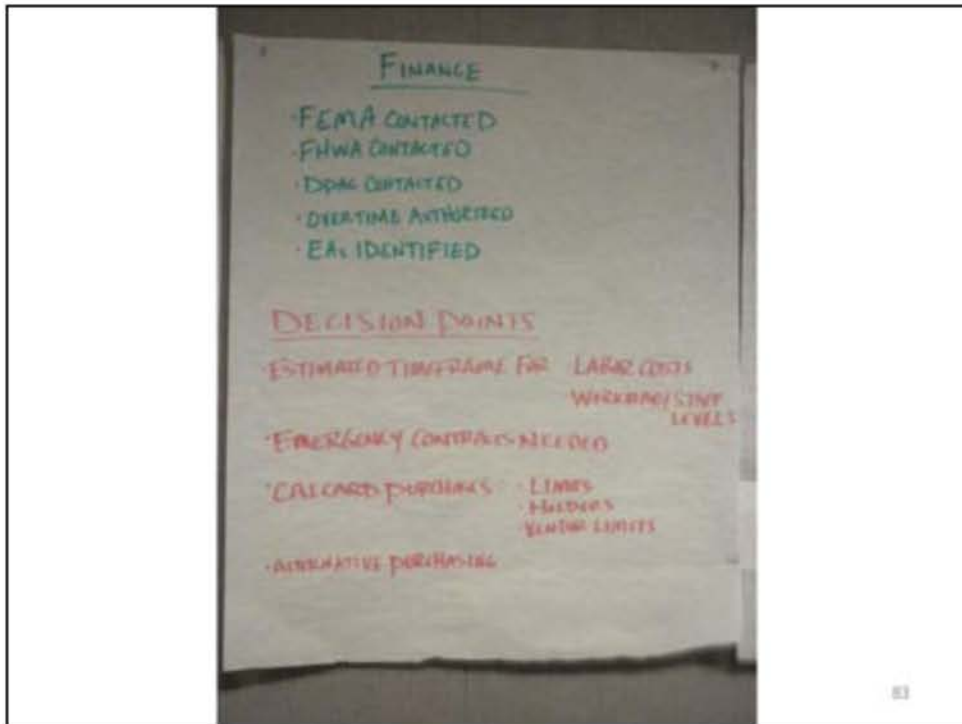 FINANCE
·FEMA CONTACTED
·FHWA CONTACTED
·DPAC CONTACTED
·OVERTIME AUTHORIZED
·EAs IDENTIFIED
DECISION POINTS
·ESTIMATED TIMEFRAME FOR LABOR COSTS
WORKLOAD/STAFF
LEVELS
·EMERGENCY CONTRACTS NEEDED
·CALCARD PURCHASES · LIMITS
· HOLDERS
· VENDOR LIMITS
·ALTERNATIVE PURCHASING
83